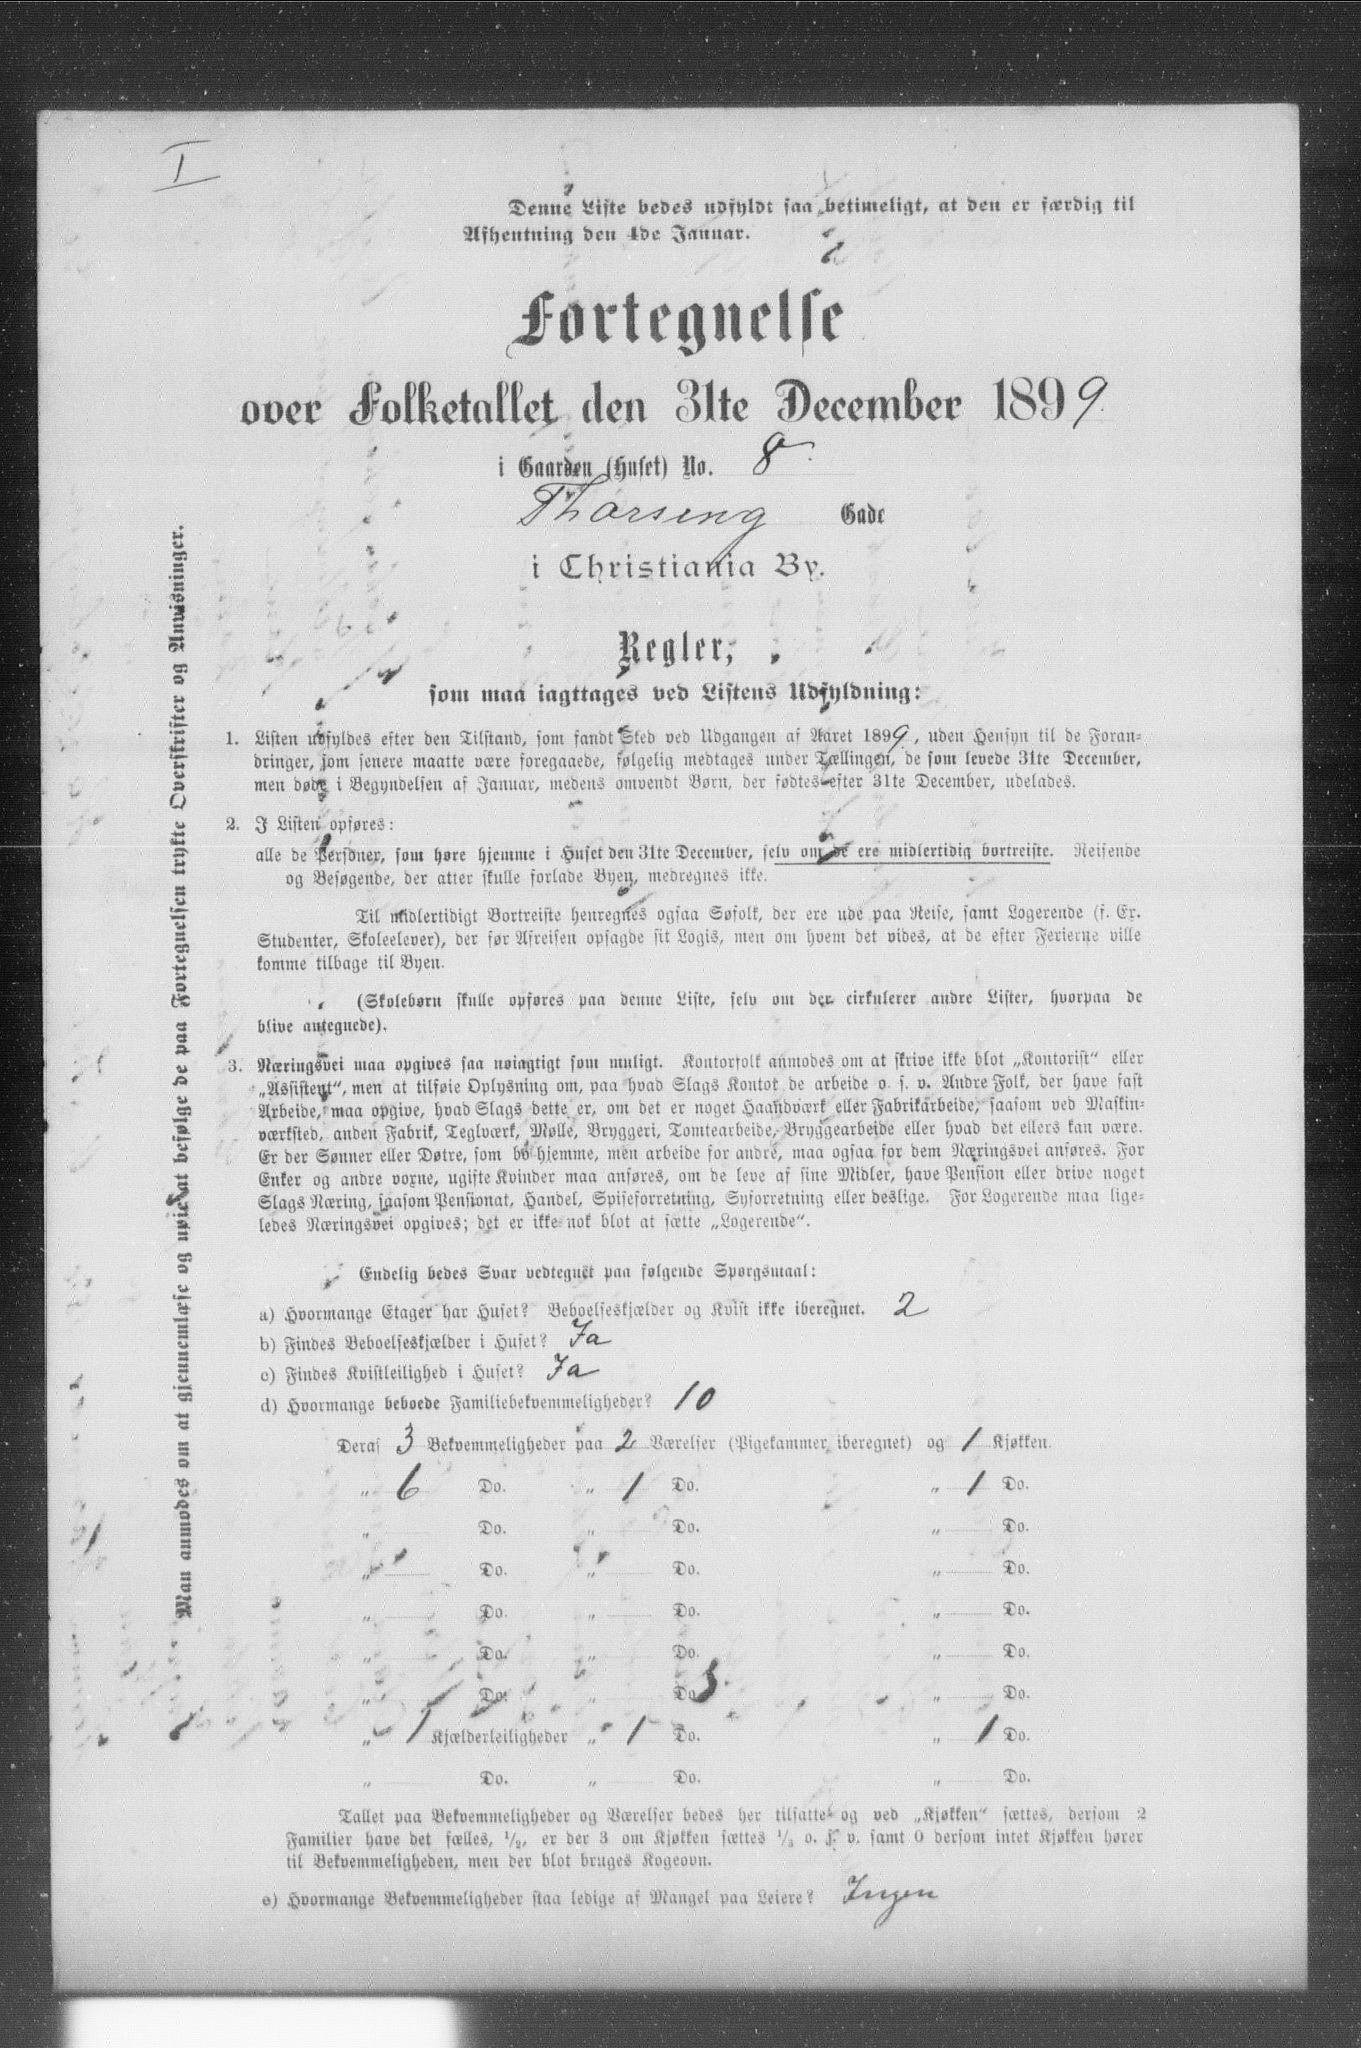 I
Denne Liste bedes udfyldt saa betimeligt, at den er færdig til
Afhentning den 4de Januar.
Fortegnelse
over Folketallet den 31te December 1899.
i Gaarden (Huset) No. 8.
Thorseng Gade
i Christiania By.
Regler,
som maa iagttages ved Listens Udfyldning:
1. Listen udfyldes efter den Tilstand, som fandt Sted ved Udgangen af Aaret 1899, uden Hensyn til de Foran-
dringer, som senere maatte være foregaaede, følgelig medtages under Tællingen, de som levede 31te December,
men døde i Begyndelsen af Januar, medens omvendt Børn, der fødtes efter 31te December, udelades.
2. I Listen opføres:
alle de Personer, som høre hjemme i Huset den 31te December, selv om de ere midlertidig bortreiste. Reisende
og Besøgende, der atter skulle forlade Byen, medregnes ikke.
Til midlertidigt Bortreiste henregnes ogsaa Søfolk, der ere ude paa Reise, samt Logerende (f. Ex.
Studenter, Skoleelever), der før Afreisen opsagde sit Logis, men om hvem det vides, at de efter Ferierne ville
komme tilbage til Byen.
(Skolebørn skulle opføres paa denne Liste, selv om der cirkulerer andre Lister, hvorpaa de
blive antegnede).
3. Næringsvei maa opgives saa nøiagtigt som muligt. Kontorfolk anmodes om at skrive ikke blot „Kontorist“ eller
„Assistent“, men at tilføie Oplysning om, paa hvad Slags Kontor de arbeide o. s. v. Andre Folk, der have fast
Arbeide, maa opgive, hvad Slags dette er, om det er noget Haandværk eller Fabrikarbeide, saasom ved Maskin-
værksted, anden Fabrik, Teglværk, Mølle, Bryggeri, Tomtearbeide, Bryggearbeide eller hvad det ellers kan være.
Er der Sønner eller Døtre, som bo hjemme, men arbeide for andre, maa ogsaa for dem Næringsvei anføres. For
Enker og andre voxne, ugifte Kvinder maa anføres, om de leve af sine Midler, have Pension eller drive noget
Slags Næring, saasom Pensionat, Handel, Spiseforretning, Syforretning eller deslige. For Logerende maa lige-
ledes Næringsvei opgives; det er ikke nok blot at sætte „Logerende“.
Endelig bedes Svar vedtegnet paa følgende Spørgsmaal:
a) Hvormange Etager har Huset? Beboelseskjælder og Kvist ikke iberegnet. 2
b) Findes Beboelseskjælder i Huset? Ja
c) Findes Kvistleilighed i Huset? Ja
d) Hvormange beboede Familiebekvemmeligheder? 10
Deraf 3 Bekvemmeligheder paa 2 Værelser (Pigekammer iberegnet) og 1 Kjøkken.
„ 6 Do. „ 1 Do. „ 1 Do.
„ Do. „ Do. „ Do.
„ Do. „ Do. „ Do.
„ Do. „ Do. „ Do.
„ Do. „ Do. „ Do.
„ Do. „ Do. „ Do.
„ 1 Kjælderleiligheder „ 1 Do. „ 1 Do.
„ Do. „ Do. „ Do.
Tallet paa Bekvemmeligheder og Værelser bedes her tilsatte og ved „Kjøkken“ sættes, dersom 2
Familier have det fælles, 1/2, er der 3 om Kjøkken sættes 1/3 o. s. v. samt 0 dersom intet Kjøkken hører
til Bekvemmeligheden, men der blot bruges Kogeovn.
e) Hvormange Bekvemmeligheder staa ledige af Mangel paa Leiere? Ingen
Man anmodes om at gjennemlæse og nøie at befølge de paa Fortegnelsen trykte Overskrifter og Anvisninger.